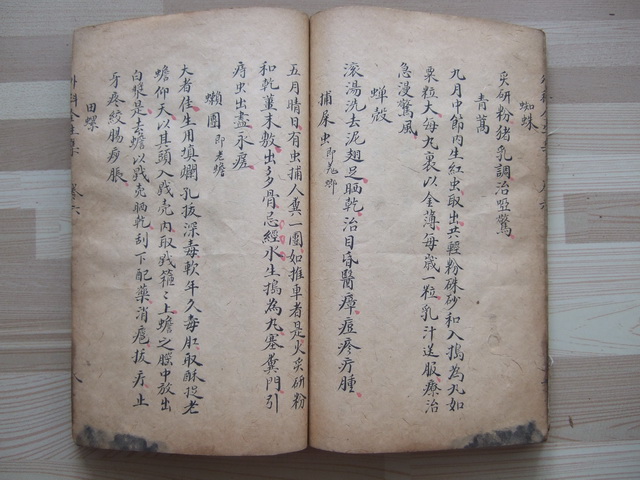 蜘蛛
采研粉猪乳調治啞驚
青蒿
九月中節内生紅虫取出共輕粉硃砂和入搗為丸如
粟粒大每丸裏以金薄每歲一粒乳汁送服療治
急漫驚風
蟬殼
滾湯洗去泥翅足晒乾治目昏醫瘴痘疹疔腫
捕屎虫即虼螂
五月晴日有虫捕人糞一團如推車者是火采研粉
和乾薑末敷出多骨忌經水生搗為丸塞糞門引
痔虫出盡永痊
癩團即老蟾
大者佳生用填爛孔拔深毒軟年久毒肛取酥捉老
蟾仰天以其頭入戥売内取戥箍〻上蟾之膛中放出
白漿是去蟾以戥売晒乾刮下配藥消疱拔疔止
牙疼絞腸痧脹
田螺